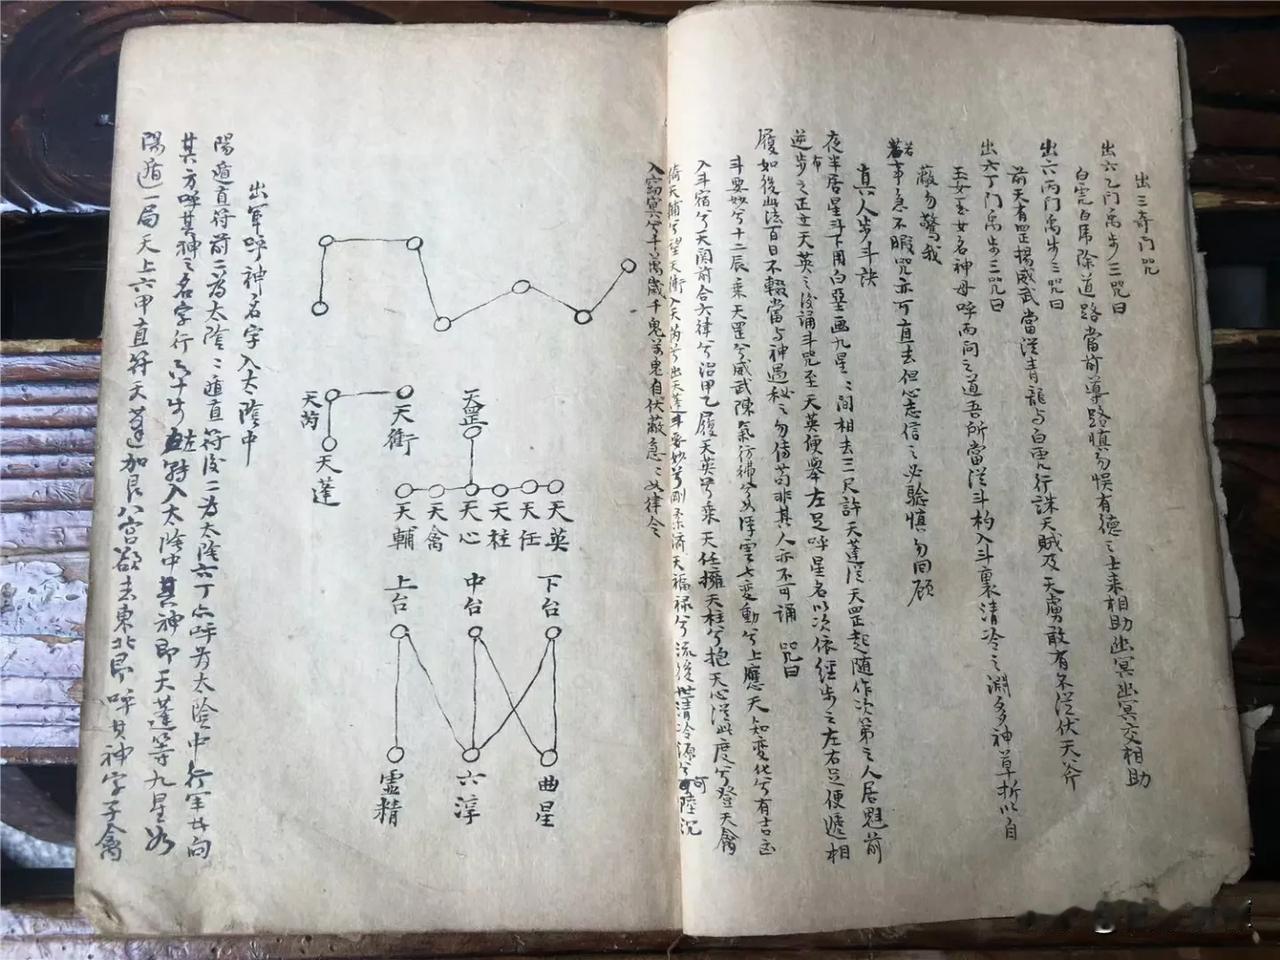 出三奇门咒
出六乙门禹步三咒曰
白虎白虎除道路當前導路慎勿悮有德之士来相助幽冥幽冥交相助
出六丙门禹步三咒曰
前天有罡揚威武當從青龍与白虎行誅天賊及天虜敢有不從伏天斧
出六丁门禹步三咒曰
玉女玉女名神母呼丙向之道吾所當從斗杓入斗裏清冷之淵多神草折以自
蔽勿驚我
若事急不暇咒亦可直去但心志信之必驗慎勿回顧
真人步斗訣
夜半居星斗下用白堊画九星二間相去三尺許天蓬從天罡起随作次第之人居魁前
逆步之正立天英之後誦斗咒至天英便舉左足呼星名以次依經步之左右足便遞相
履如後此法百日不輟當与神遇秘之勿傳苟非其人亦不可誦 咒曰
斗要妙兮十二辰乘天罡兮威武陳氣彷彿兮如浮雲七变動兮上應天知变化兮有吉凶
入斗宿兮天関前合六律兮治甲乙履天英兮乘天任擁天柱兮抱天心從此度兮登天禽
倚天輔兮望天衝入天芮兮出天蓬斗要妙兮剛柔濟天福禄兮流後世清冷源兮可陸沉
入窈冥兮千萬歲千鬼萬鬼自伏蔽急二如律令
天罡
天衝
天芮
天蓬
天英
天任
天柱
天心
天禽
天輔
下台
中台
上台
曲星
六淳
霊精
出軍呼神名字入太陰中
陽遁直符前二为太陰二遁直符後二为太陰六丁亦呼为太陰中行軍出向
其方呼其神之名字行六十步入太陰中其神即天蓬等九星必
陽遁一局天上六甲直符天蓬加艮八宫欲去東北即呼其神字子禽